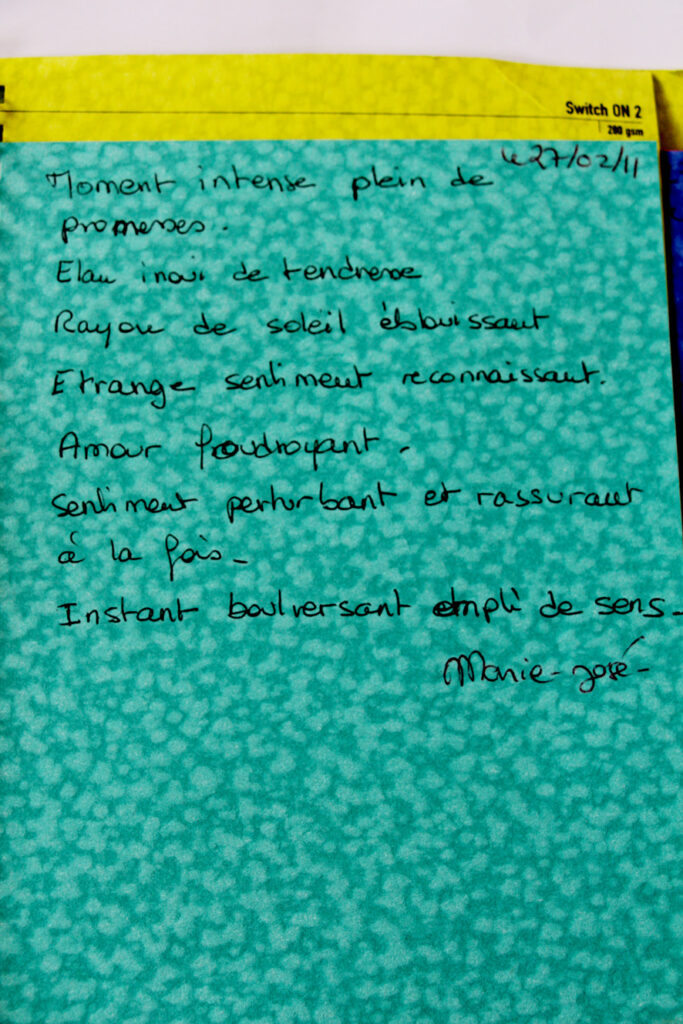 Switch ON 2
280 gsm
Le 27/02/11
Moment intense plein de
promesses.
Elan inoui de tendresse
Rayon de soleil éblouissant
Etrange sentiment reconnaissant.
Amour foudroyant.
Sentiment perturbant et rassurant
à la fois_
Instant boulversant empli de sens_
Marie-José_